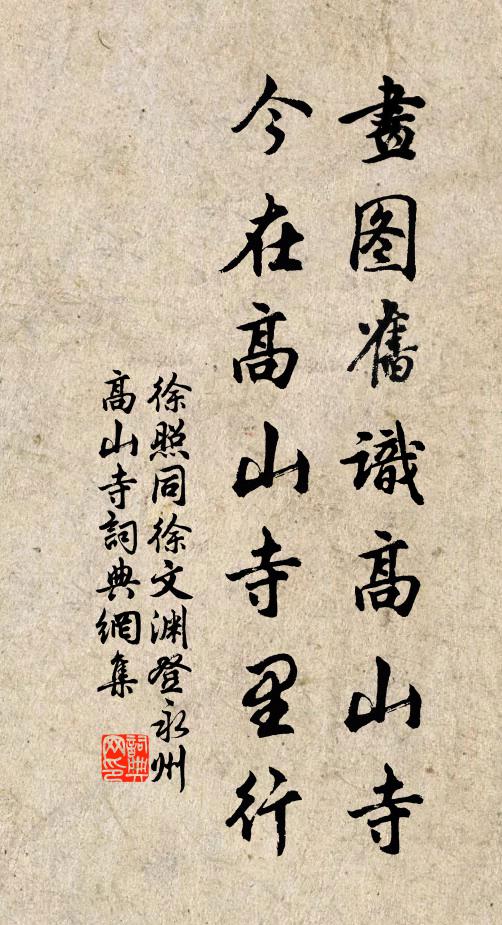 畫图舊識高山寺
今在高山寺里行
徐照同徐文渊登永州
高山寺詞典網集
詞典
网印